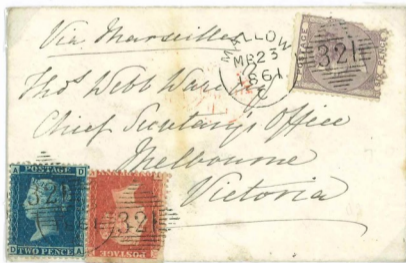 Via Marseilles
MALLOW
MR 23
1861
321
Thos Webb Ware
Chief Secretary's Office
Melbourne
Victoria
POSTAGE
D A
TWO PENCE
321
321